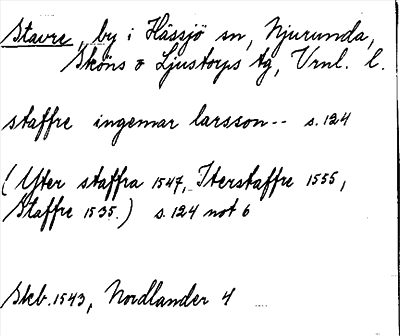 Stavre, by i Hässjö sn, Njurunda,
Sköns o Ljustorps tg, Vrnl. l.
staffre ingemar larsson-- s.124
(Yter staffra 1547, Iterstaffre 1555,
Staffre 1535.) s.124 not 6
Skb.1543, Nordlander 4